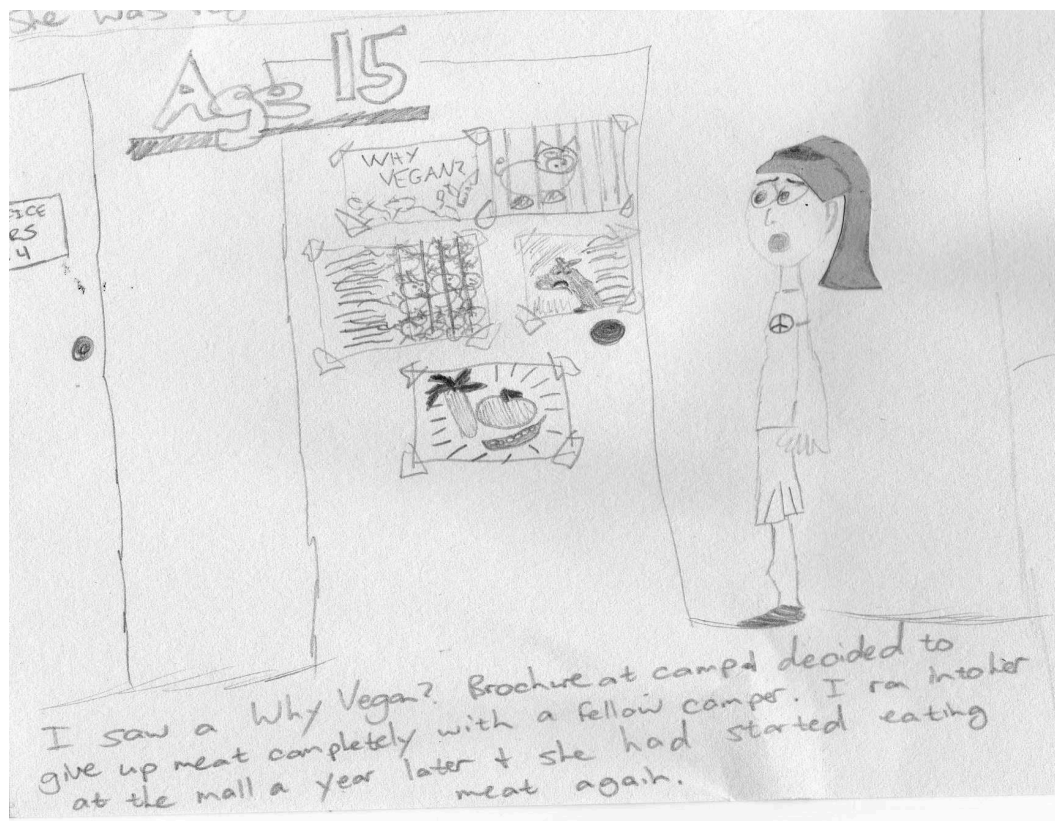 She was
Age 15
WHY
VEGAN?
ICE
RS
4
I saw a Why Vegan? Brochure at camp + decided to
give up meat completely with a fellow camper. I ran into her
at the mall a year later + she had started eating
meat again.